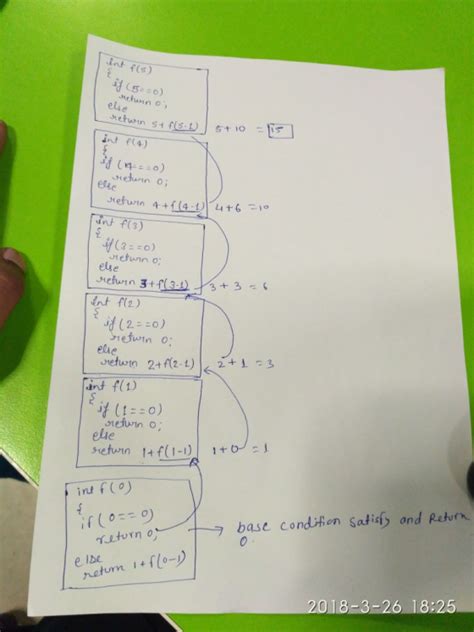 int f(5)
{
if (5==0)
return 0;
else
return 5+f(5-1) 5+10 = 15
int f(4)
{
if (4==0)
return 0;
else
return 4+f(4-1) 4+6 =10
int f(3)
{
if (3==0)
return 0;
else
return 3+f(3-1) 3+3 =6
int f(2)
{
if (2==0)
return 0;
else
return 2+f(2-1) 2+1 =3
int f(1)
{
if (1==0)
return 0;
else
return 1+f(1-1) 1+0 =1
int f(0)
{
if (0==0)
return 0;
else
return 1+f(0-1)
base condition satisfy and Return
0.
2018-3-26 18:25